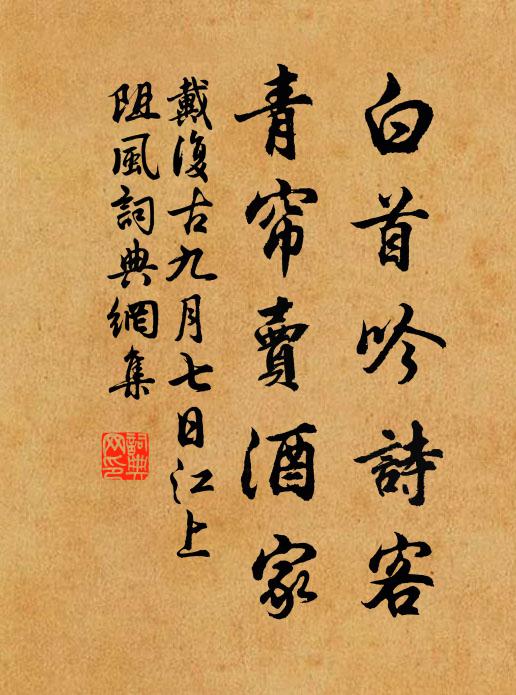 白首吟詩客
青帘賣酒家
戴復古九月七日江上
阻風詞典網集
詞典
网印